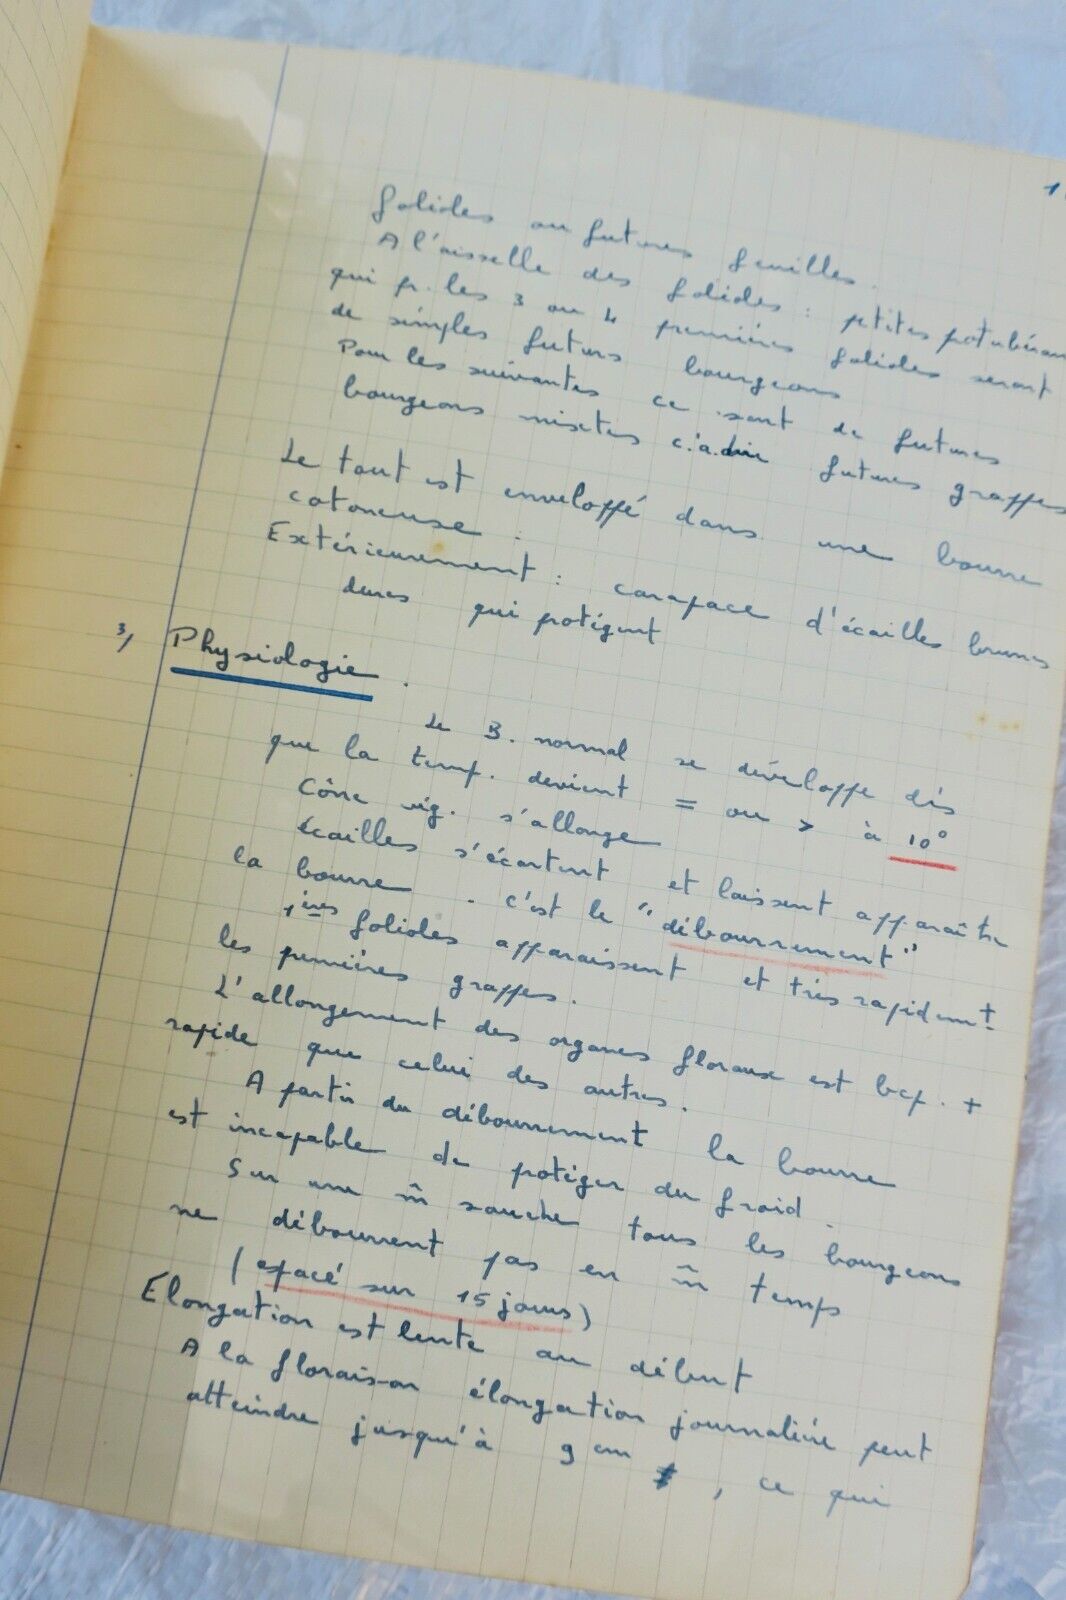 folioles ou futures feuilles.
A l'aisselle des folioles : petites potubéran
qui pr. les 3 ou 4 premières folioles seront
de simples futurs bourgeons
Pour les suivantes ce sont de futures
bourgeons mixtes c.'a.dire futures grappes
Le tout est enveloppé dans une bourre
cotoneuse :
Extérieurement : carapace d'écailles brunes
dures qui potègent
3) Physiologie.
Le B. normal se développe dès
que la temp. devient = ou > à 10°
Cône vég. s'allonge
écailles s'écartent et laissent apparaître
la bourre. c'est le "débourrement"
1ères folioles apparaissent et très rapidemt
les premières grappes.
L'allongement des organes floraux est bcp. +
rapide que celui des autres.
A partir du débourrement la bourre
est incapable de protéger du froid.
Sur une m̂ souche tous les bourgeons
ne débourrent pas en m̂ temps
(espacé sur 15 jours)
Elongation est lente au début
A la floraison élongation journalière peut
atteindre jusqu'à 9 cm , ce qui